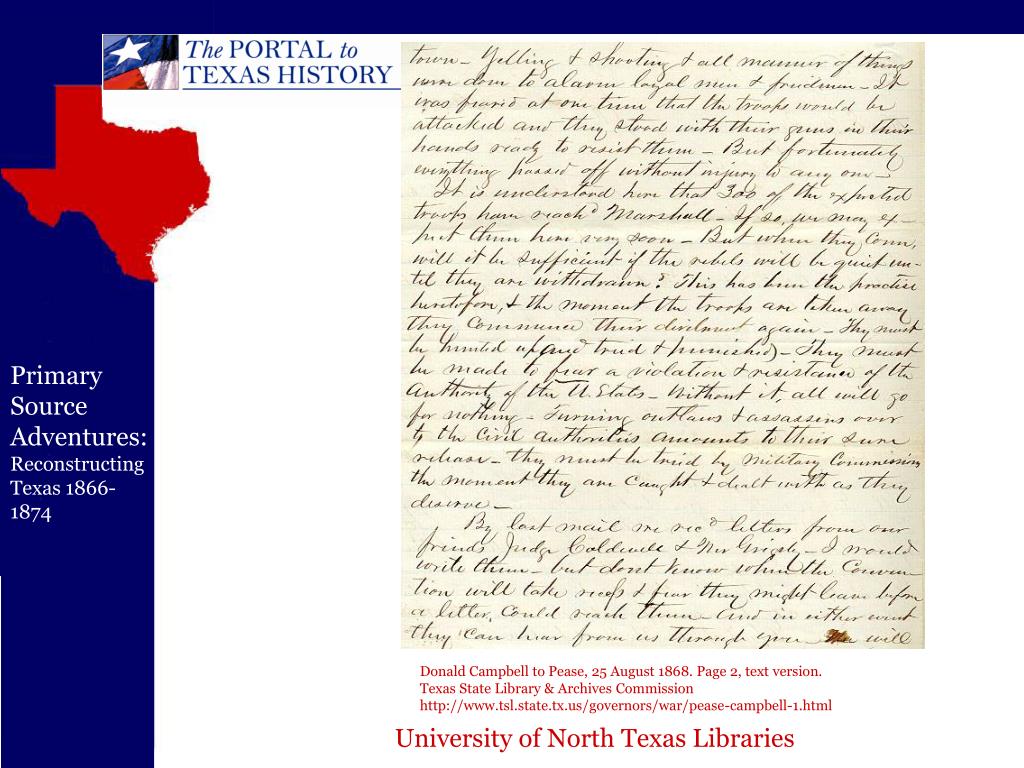 The PORTAL to
TEXAS HISTORY
town - Yelling & shooting & all manner of things
were done to alarm loyal men & freedmen - It
was feared at one time that the troops would be
attacked and they stood with their guns in their
hands ready to resist them - But fortunately
everything passed off without injury to any one -
It is understood here that 300 of the expected
troops have reachd Marshall - If so, we may ex-
pect them here very soon - But when they come,
will it be sufficient if the rebels will be quiet un-
til they are withdrawn? This has been the practice
heretofore, & the moment the troops are taken away
they commence their again - They must
be hunted up (and tried & punished) - They must
be made to fear a violation & resistance of the
Authority of the U. States - Without it, all will go
for nothing - Turning outlaws & assassins over
to the Civil authorities amounts to their sure
release - they must be tried by Military Commission
the moment they are caught & dealt with as they
deserve -
By last mail we recd letters from our
friends Judge Caldwell & Mr Grigsby - I would
write them - but dont know when the Conven-
tion will take recess & fear they might leave before
a letter, could reach them - and in either event
they can hear from us through you will
Primary
Source
Adventures:
Reconstructing
Texas 1866-
1874
Donald Campbell to Pease, 25 August 1868. Page 2, text version.
Texas State Library & Archives Commission
http://www.tsl.state.tx.us/governors/war/pease-campbell-1.html
University of North Texas Libraries